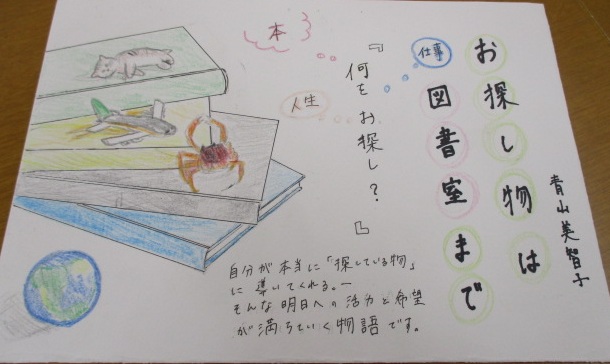 お探し物は
図書室まで
青山美智子
『何をお探し？』
本
仕事
人生
自分が本当に「探している物」
に導いてくれる。ー
そんな明日への活力と希望
が満ちていく物語です。